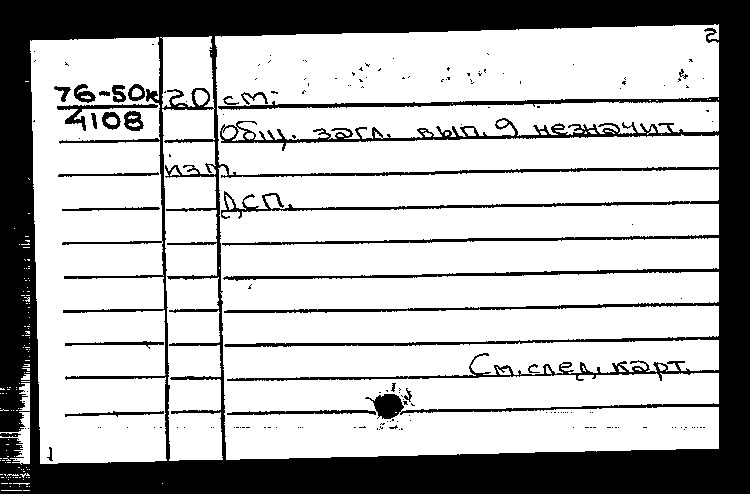 2
76-50к 20 см;
4108
Общ. загл. вып. 9 незначит.
изм.
ДСП.
См. след. карт.
1